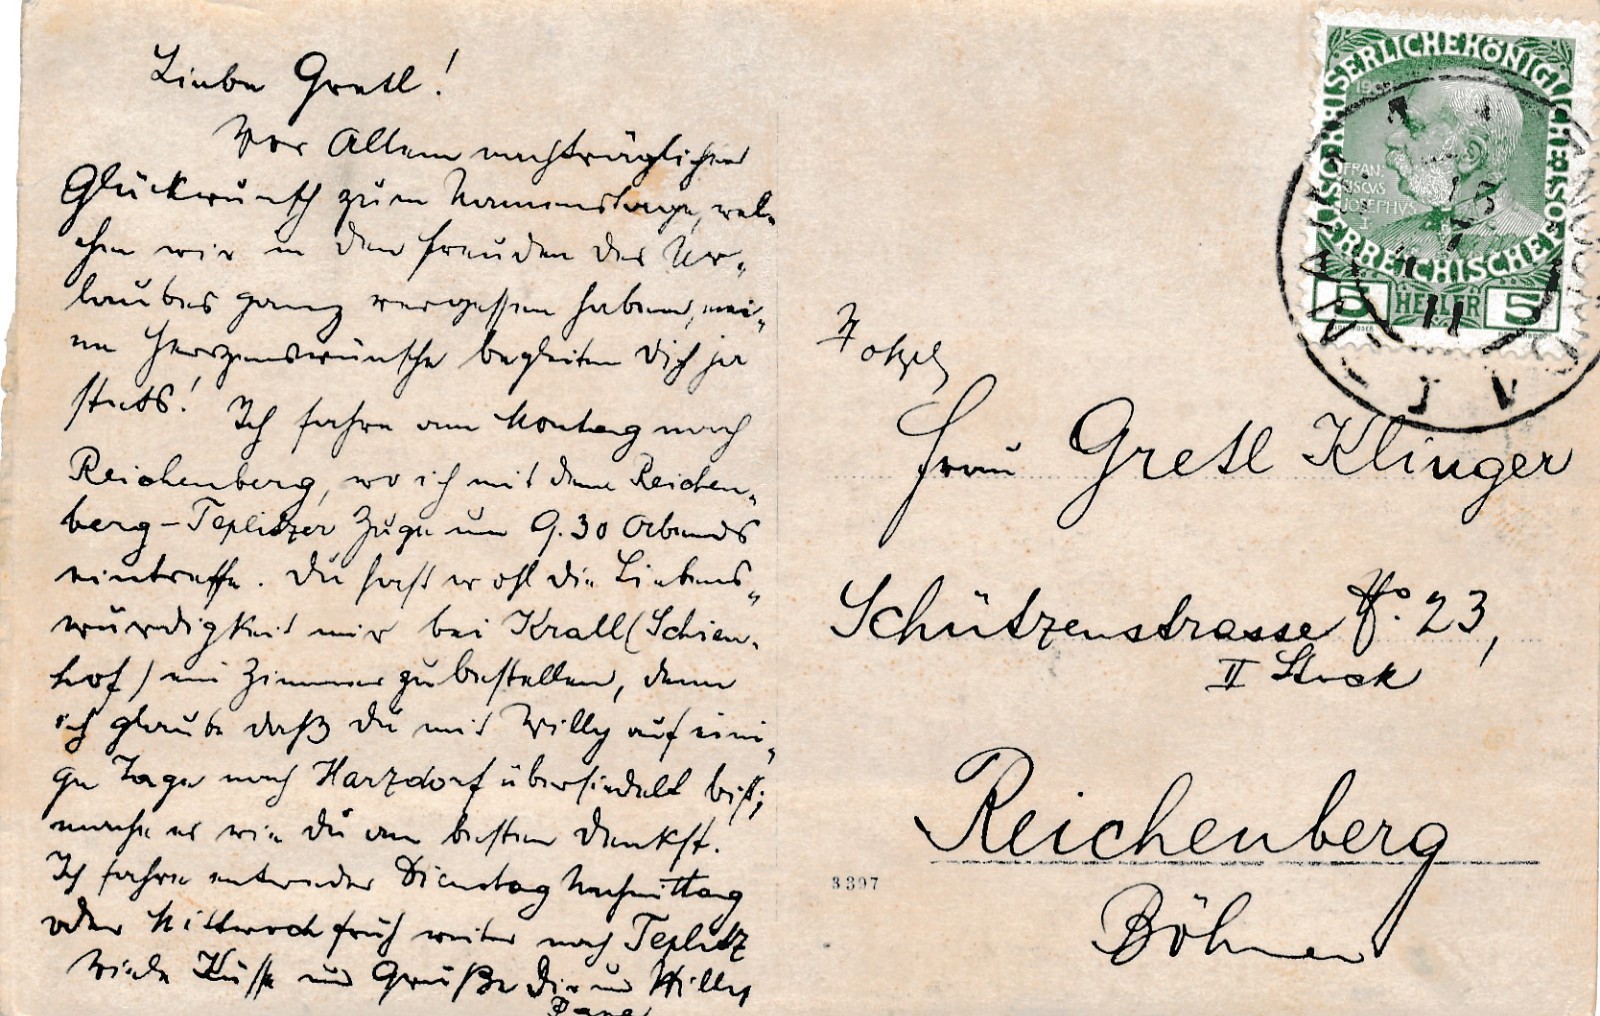 Liebe Gretl!
Vor Allem nachträglichen
Glückwunsch zum Namenstage, wel-
chen wir in den Freuden des Ur-
laubes ganz vergessen haben, mei-
ne Herzenswünsche begleiten Dich ja
stets! Ich fahre am Montag nach
Reichenberg, wo ich mit dem Reichen-
berg-Teplitzer Zuge um 9.30 Abends
eintreffe. Du hast wohl die Liebens-
würdigkeit mir bei Krall (Schien-
hof) ein Zimmer zu bestellen, denn
ich glaube daß du mit Willy auf eini-
ge Tage nach Harzdorf übersiedelt bist;
mache es wie du am besten denkst.
Ich fahre entweder Dienstag Nachmittag
oder Mittwoch früh weiter nach Teplitz
Viele Küsse und Grüße Dir und Willy
KAISERLICHE KÖNIGLICHE ÖSTERREICHISCHE POST
1908
FRAN:
CISCVS
JOSEPHVS
I
5 HELLER 5
Frau Gretl Klinger
Schützenstrasse No. 23,
II Stock
Reichenberg
Böhmen
3397